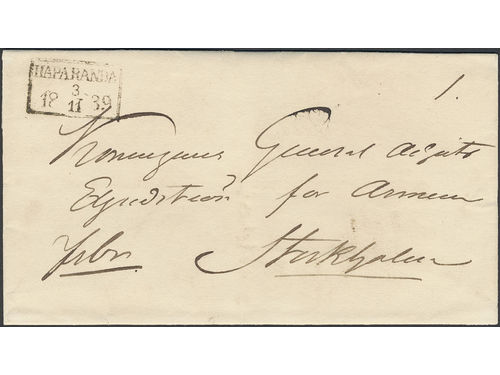 HAPARANDA
3
18 11 39
1.
Konungens General Adjut.
Expedition for Armeen
frbr
Stockholm